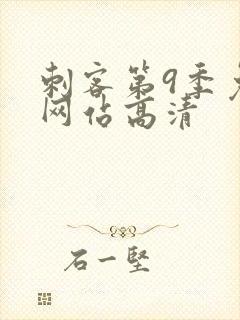 刺客第9季免
网佔高清
石一堅